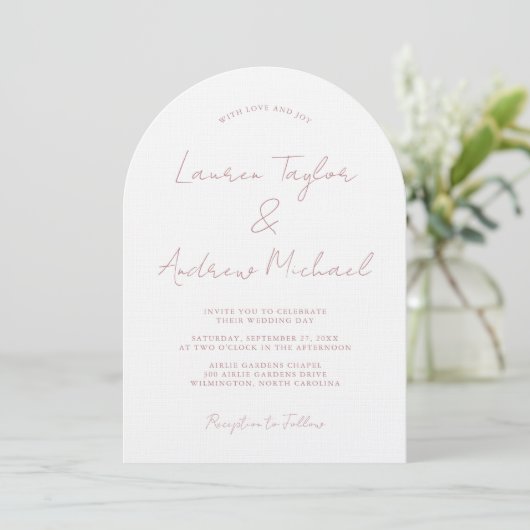 WITH LOVE AND JOY
Lauren Taylor
&
Andrew Michael
INVITE YOU TO CELEBRATE
THEIR WEDDING DAY
SATURDAY, SEPTEMBER 27, 20XX
AT TWO O'CLOCK IN THE AFTERNOON
AIRLIE GARDENS CHAPEL
300 AIRLIE GARDENS DRIVE
WILMINGTON, NORTH CAROLINA
Reception to Follow